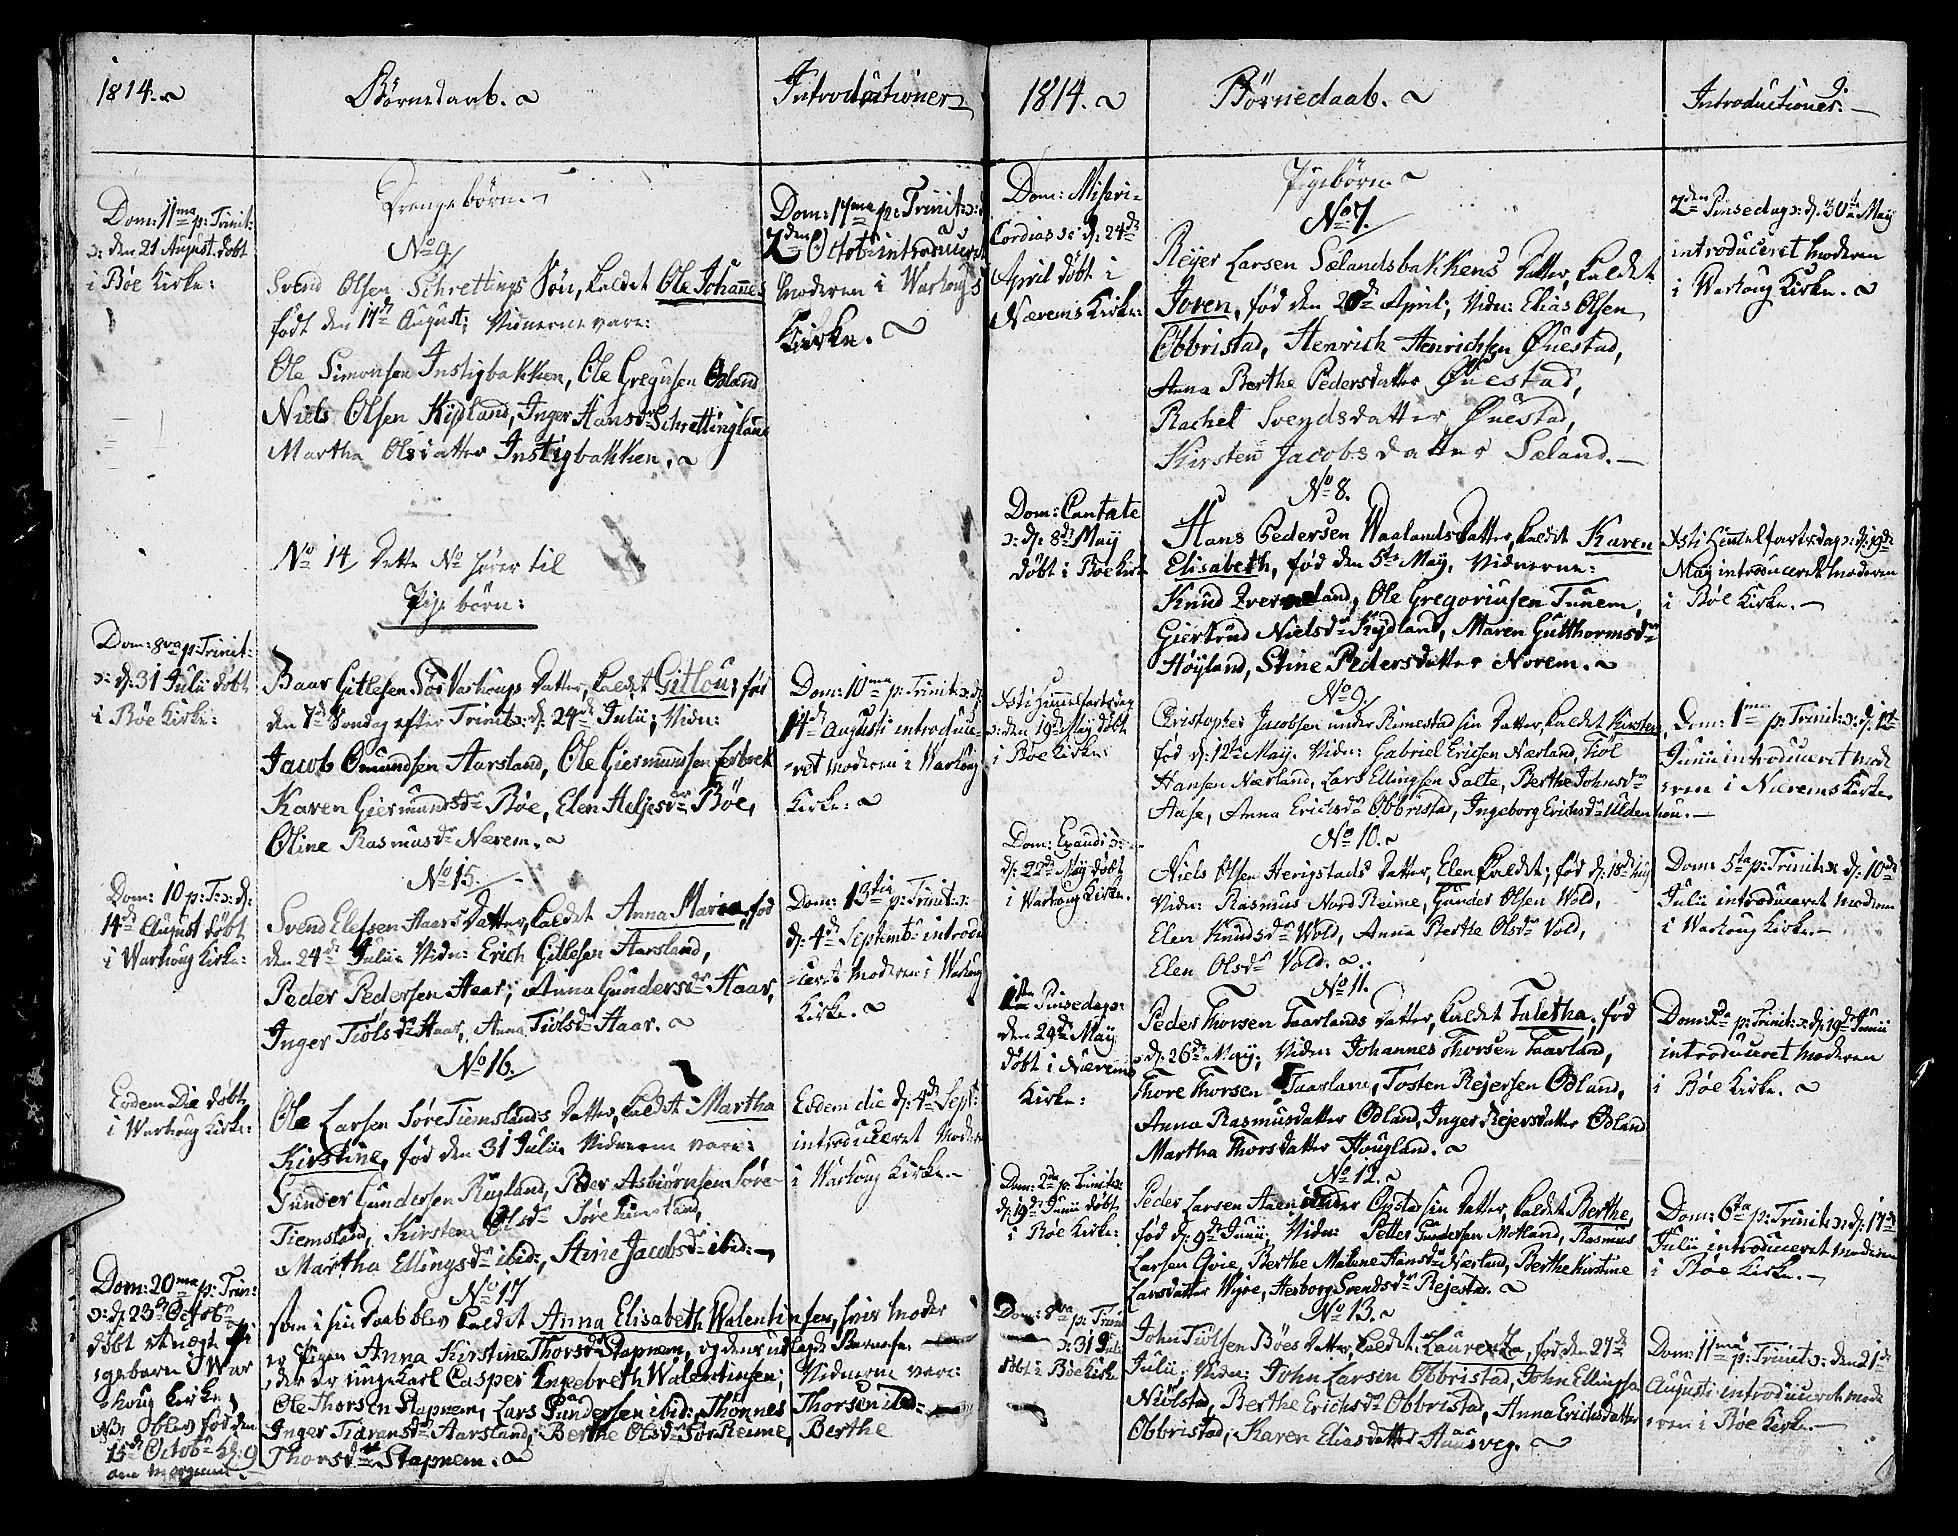 1814.
Börnedaab.
Introductioner
Drengebörn.
Dom: 11ma p: Trinit:
ɔ: den 21 August döbt
i Böe Kirke:
No 9
Svend Olsen Schrettings Sön, kaldet Ole Johanes
födt den 17de August; Vidnerne vare:
Ole Simonsen Instigbakken, Ole Gregusen Odland
Niels Olsen Kydland, Inger Hansdr Schrettingland
Martha Olsdatter Instigbakken.
Dom: 17ma p: Trinit: ɔ:
2den Octob: introduceret
Moderen i Warhougs
Kirke.
No 14 Dette No hörer til
Pige börn:
Dom: 8va p: Trinit:
ɔ: d: 31 Julii döbt
i Böe Kirke:
Baar Gitlesen Sör Varhougs Datter, kaldet Gitlou, föd
den 7de Söndag efter Trinit: ɔ: d: 24de Julii; Vidn:
Jacob Omundsen Aarsland, Ole Giermundsen
Karen Giermundsdr Böe, Elen Heljesdr Böe,
Oline Rasmusdr Nærem.
Dom: 10ma p: Trinit: ɔ: d:
14de Augusti introduce-
-ret Moderen i Warhoug
Kirke:
Dom: 10 p: T: ɔ: d:
14de August döbt
i Warhoug Kirke:
No 15.
Svend Elefsen Haars Datter, kaldet Anna Maria, föd
den 24de Julii. Vidn: Erich Gitlesen Aarsland,
Peder Pedersen Haar; Anna Gundersdr Haar,
Inger Tiölsdr Haar, Anna Tiölsdr Haar.
Dom: 13tia p: Trinit: ɔ:
d: 4de Septemb: introdu
-ceret Moderen i Warhoug
Kirke.
Eodem Die döbt
i Warhoug Kirke:
No 16.
Ole Larsen Söre Tiemslands Datter, kaldet Martha
Kirstine, föd den 31 Julii. Vidnerne vare:
Gunder Gundersen Rugland, Peder Asbiörnsen Söre-
Tiemsland, Kirsten Olsdr Söre Tiemsland,
Martha Ellingsdr ibid:, Stine Jacobsdr ibid:
Eodem die d: 4de Sept:
introduceret Moder
i Warhoug Kirke.
Dom: 20ma p: Trin:
ɔ: d: 23de Octob:
döbt et uægte Pi
gebarn i War
houg Kirke
NB: blev föd den
15de Octob: kl: 9
om Morgenen.
No 17
som i sin Daab blev kaldet Anna Elisabeth Walentinsen, hvis Moder
er Pigen Anna Kirstine Thorsdr Stapnem, og dens udlagde Barnefa-
der er ungekarl Casper Ingebreth Walentinsen;
Vidnerne vare:
Ole Thorsen Stapnem, Lars Gundersen ibid:, Thönnes Thorsen ibid:
Inger Tidransdr Aarsland, Berthe Olsdr Sör Reime, Berthe
Thorsdr Stapnem.
9.
1814.
Börnedaab.
Introductioner.
Pigebörn.
Dom: Miseri-
cordias ɔ: d: 24de
April döbt i
Nærems Kirke:
No 7.
Reyer Larsen Sælandsbakkens Datter, kaldet
Joren, föd den 20de April; Vidn: Elias Olsen
Obbristad, Henrich Henrichsen Questad,
Anna Berthe Pedersdatter Questad,
Rachel Svendsdatter Questad,
Kirsten Jacobsdatter Sæland.
2den Pinsedag ɔ: d: 30te Maÿ
introduceret Moderen
i Warhoug Kirke.
Dom: Cantate
ɔ: d: 8de Maÿ
döbt i Böe Kirke
No 8.
Hans Pedersen Waalands Datter, kaldet Karen
Elisabeth, föd den 5te Maÿ. Vidnerne:
Knud, Ole Gregoriusen Tunem,
Giertrud Nielsdr Kydland, Maren Gutthormsdr
Höyland, Stine Pedersdatter Norem.
Xsti Himmelfartsdag ɔ: d: 19de
Maÿ introduceret Moderen
i Böe Kirke.
Xsti Himmelfartsdag
ɔ: den 19de Maÿ döbt
i Böe Kirke:
No 9.
Christopher Jacobsen under Rimestad sin Datter, kaldet Kirsten,
föd d: 12te Maÿ. Vidn: Gabriel Ericsen Nærland, Tiöl
Hansen Nærland, Lars Ellingsen Salte, Berthe Johnsdr
Aase, Anna Erichsdr Obbristad, Ingeborg Erichsdr Uldenhou.
Dom: 1ma p: Trinit: ɔ: d: 12te
Junii introduceret Mod
eren i Nærems Kirke.
Dom: Exaudi ɔ:
d: 22de Maÿ döbt
i Warhoug Kirke.
No 10.
Niels Olsen Herigstads Datter, Elen kaldet; föd d: 18de Maÿ
Vidn: Rasmus Nord Reime, Gunder Olsen Wold,
Elen Knudsdr Wold, Anna Berthe Olsdr Vold,
Elen Olsdr Vold.
Dom: 5ta p: Trinit: ɔ: d: 10de
Julii introduceret Moderen
i Warhoug Kirke.
1ste Pinsedag ɔ:
den 29de Maÿ
döbt i Nærems
Kirke:
No 11.
Peder Thorsen Taarlands Datter, kaldet Taletha, föd
d: 26de Maÿ; Vidn: Johannes Thorsen Taarland,
Thore Thorsen Taarland, Tosten Rejersen Odland,
Anna Rasmusdatter Odland, Inger Rejersdatter Odland
Martha Thorsdatter Hougland.
Dom: 2da p: Trinit: ɔ: d: 19de Junii
introduceret Moderen
i Böe Kirke.
Dom: 2da p: Trinit: ɔ:
d: 19de Junii döbt
i Böe Kirke:
No 12.
Peder Larsen Haaen under Opstad sin Datter, kaldet Berthe,
föd d: 9de Junii; Vidn: Petter Gundersen Motland, Rasmus
Larsen Qvie, Berthe Malene Hansdr Nærland, Berthe Kirstine
Larsdatter Wigre, Herborg Svendsdr Rejestad.
Dom: 6ta p: Trinit: ɔ: d: 17de
Julii introduceret Moderen
i Böe Kirke.
Dom: 8va p: Trinit
ɔ: 31 Julii
döbt i Böe Kirk
No 13.
John Tiölsen Böes Datter, kaldet: Laurenza, föd den 27de
Julii; Vidn: John Larsen Obbristad, John Ellingsen
Niölstad, Berthe Erichsdr Obbristad, Anna Erichsdatter
Obbristad, Karen Eliasdatter Haarveg.
Dom: 11ma p: Trinit: ɔ: den 21de
Augusti introduceret Mod
eren i Böe Kirke.